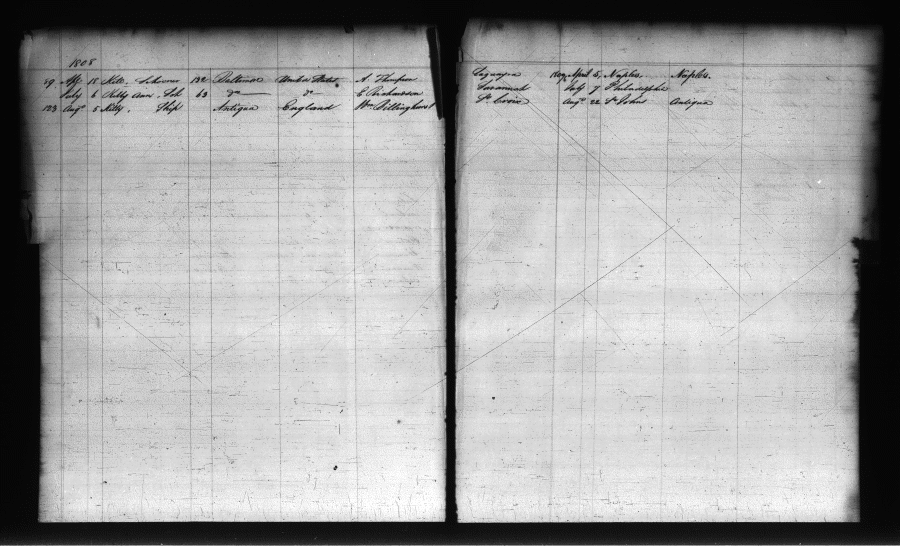 1808
59 Apl 18 Kitt Schooner 132 Baltimore United States A. Thompson Laguayra 1809 April 5, Naples. Naples.
July 6 Kitty Ann Sch 63 do do E Richardson Savannah July 7 Philadelphia
123 Augt 5 Kitty Ship Antigua England Wm Billinghurst St Croix Augt 22 St Johns Antigua